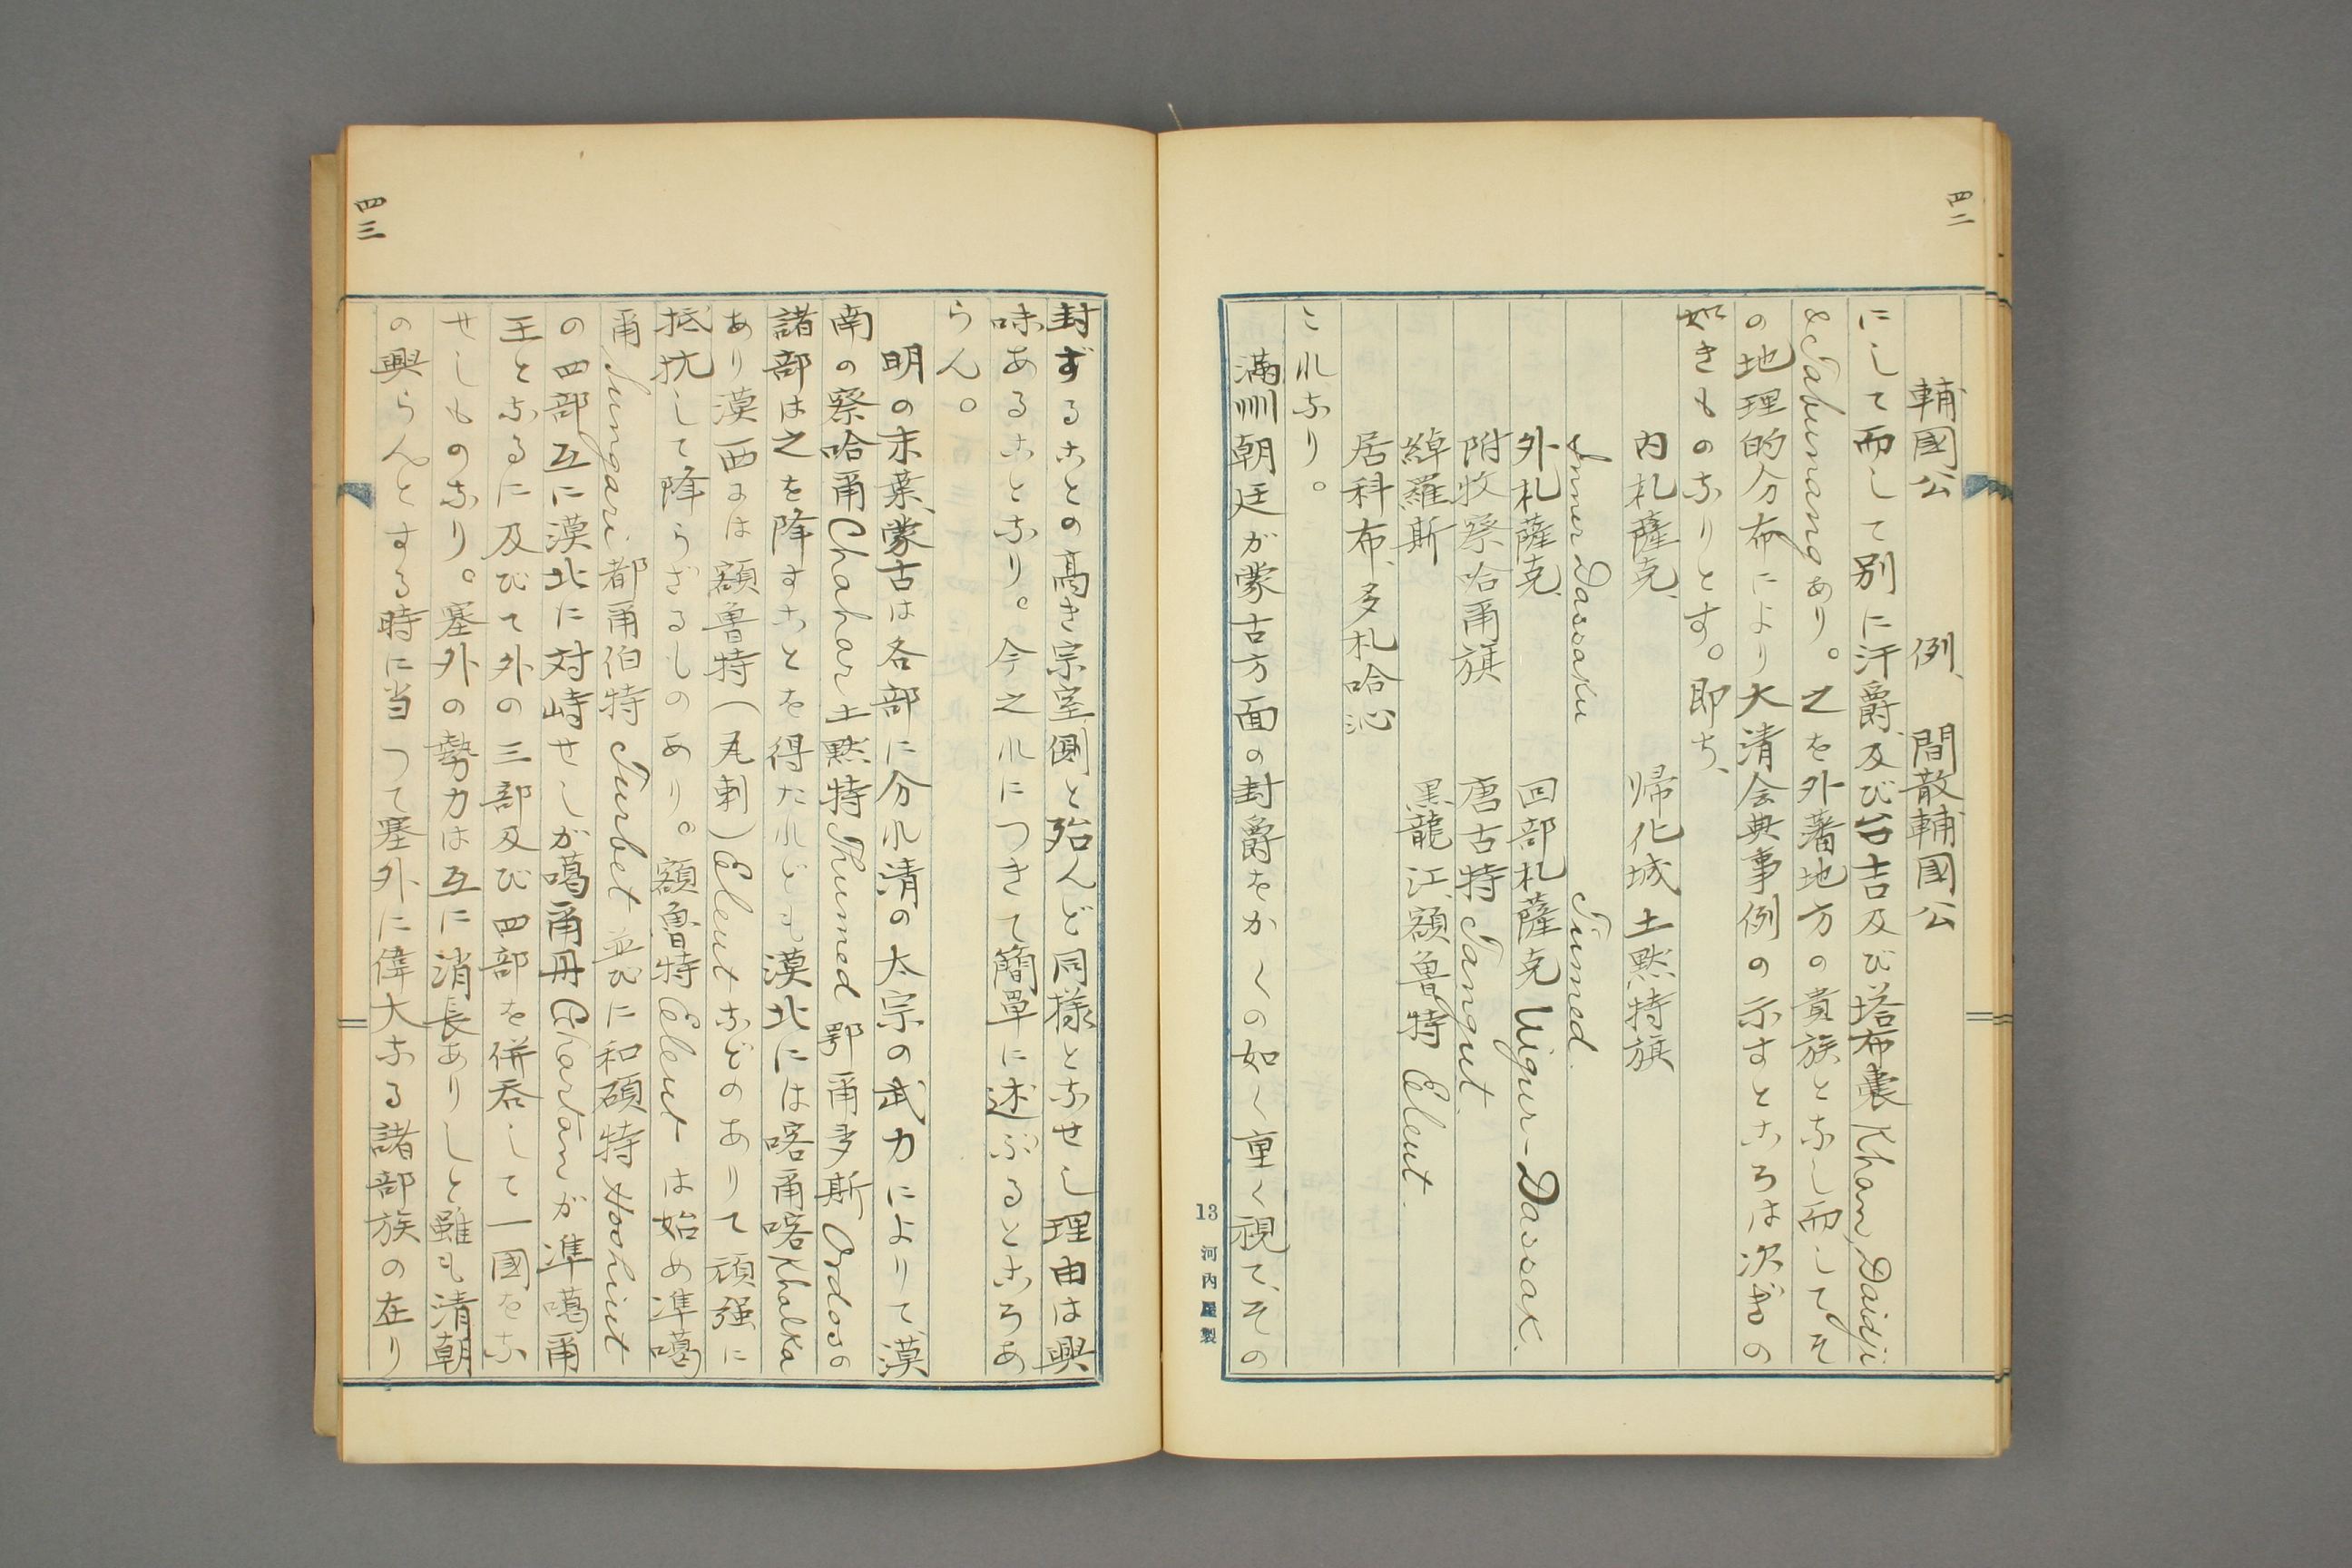 四二
輔國公　例、間散輔國公
にして而して別に汗爵、及び台吉及び塔布囊 Khan, Daidji
& Tabunangあり。之を外蕃地方の貴族となし而して、そ
の地理的分布により大清会典事例の示すところは次ぎの
如きものなりとす。即ち、
内札薩克、　帰化城土黙特旗
Inner Dassaku　Tumed.
外札薩克、　回部札薩克 Uigur-Dassak.
附牧察哈爾旗　唐古特 Tangut.
綽羅斯　黒龍江、額魯特 Eleut.
居科布、多札哈沁
これなり。
満洲朝廷が蒙古方面の封爵をかくの如く重く視て、その
13 河內屋製
四三
封ずることの高き宗室側と殆んど同様となせし理由は興
味あることなり。今之れにつきて簡單に述ぶるところあ
らん。
明の末葉、蒙古は各部に分れ清の太宗の武力によりて、漠
南の察哈爾Chahar土黙特Thumed 鄂爾多斯Ordosの
諸部は之を降すことを得たれども漠北には喀爾喀Khalka
あり漠西には額魯特(瓦剌)Eleutなどのありて頑強に
抵抗して降らざるものあり。額魯特Eleutは始め準噶
爾Jungari、都爾伯特Turbet並びに和碩特Hoshiut
の四部互に漠北に対峙せしが噶爾丹Ghartanが準噶爾
王となるに及びて外の三部及び四部を併呑して一國をな
せしものなり。塞外の勢力は互に消長ありしと雖も清朝
の興らんとする時に当つて塞外に偉大なる諸部族の在り